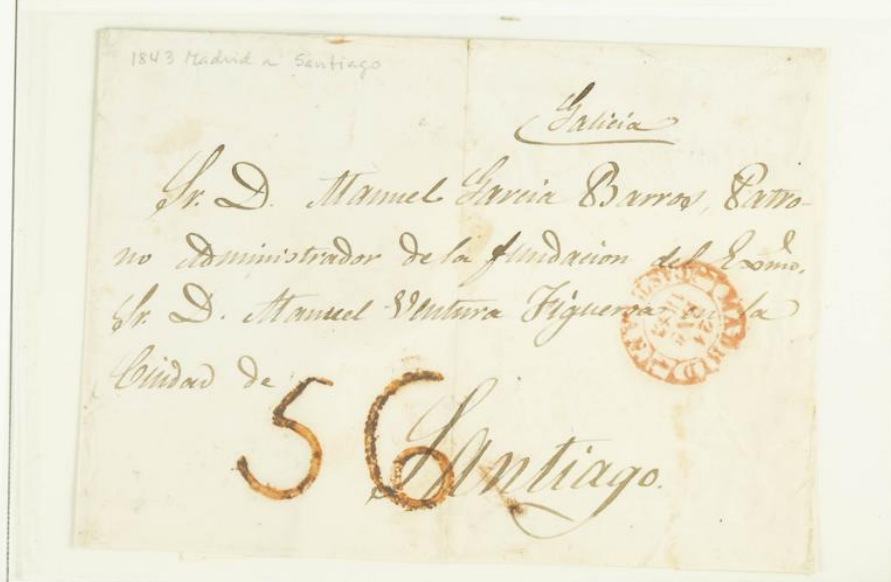 1843 Madrid a Santiago
Galicia
Sr. D. Manuel Garcia Barros, Patro-
no Administrador de la fundacion del Exmo.
Sr. D. Manuel Ventura Figueroa en la
Ciudad de
56
Santiago.
MADRID